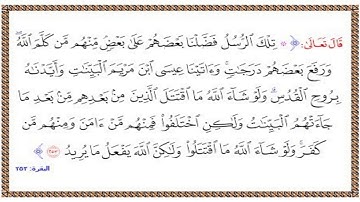 قَالَ تَعَالَىٰ: ﴿ ۞ تِلْكَ ٱلرُّسُلُ فَضَّلْنَا بَعْضَهُمْ عَلَىٰ بَعْضٍۘ مِّنْهُم مَّن كَلَّمَ ٱللَّهُۖ
وَرَفَعَ بَعْضَهُمْ دَرَجَٰتٍۚ وَءَاتَيْنَا عِيسَى ٱبْنَ مَرْيَمَ ٱلْبَيِّنَٰتِ وَأَيَّدْنَٰهُ
بِرُوحِ ٱلْقُدُسِۗ وَلَوْ شَآءَ ٱللَّهُ مَا ٱقْتَتَلَ ٱلَّذِينَ مِنۢ بَعْدِهِم مِّنۢ بَعْدِ مَا
جَآءَتْهُمُ ٱلْبَيِّنَٰتُ وَلَٰكِنِ ٱخْتَلَفُوا۟ فَمِنْهُم مَّنْ ءَامَنَ وَمِنْهُم مَّن
كَفَرَۚ وَلَوْ شَآءَ ٱللَّهُ مَا ٱقْتَتَلُوا۟ وَلَٰكِنَّ ٱللَّهَ يَفْعَلُ مَا يُرِيدُ ٢٥٣ ﴾
البقرة: ٢٥٣